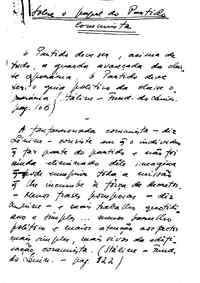 Sobre o papel do Partido
Comunista
O Partido deve ser, acima de
tudo, a guarda avançada da clas-
se operária; o Partido deve
ser o guia político da classe o-
perária (Stáline - Fund. do Lenin.
pag. 106)
A comunista - diz
Lénine - consiste em q o individuo
q fez parte do partido e não foi
ainda eliminado dele imagina
q pode cumprir toda a missão
q lhe incumbe à força de decretos.
- Menos frases pomposas - diz
Lénine - e mais trabalho quotidi-
ano e simples... menos
político e mais atenção aos factos
mais simples, mais vivos da edifi-
cação comunista. (Stáline - Fund.
do Lenin. - pag. 122)